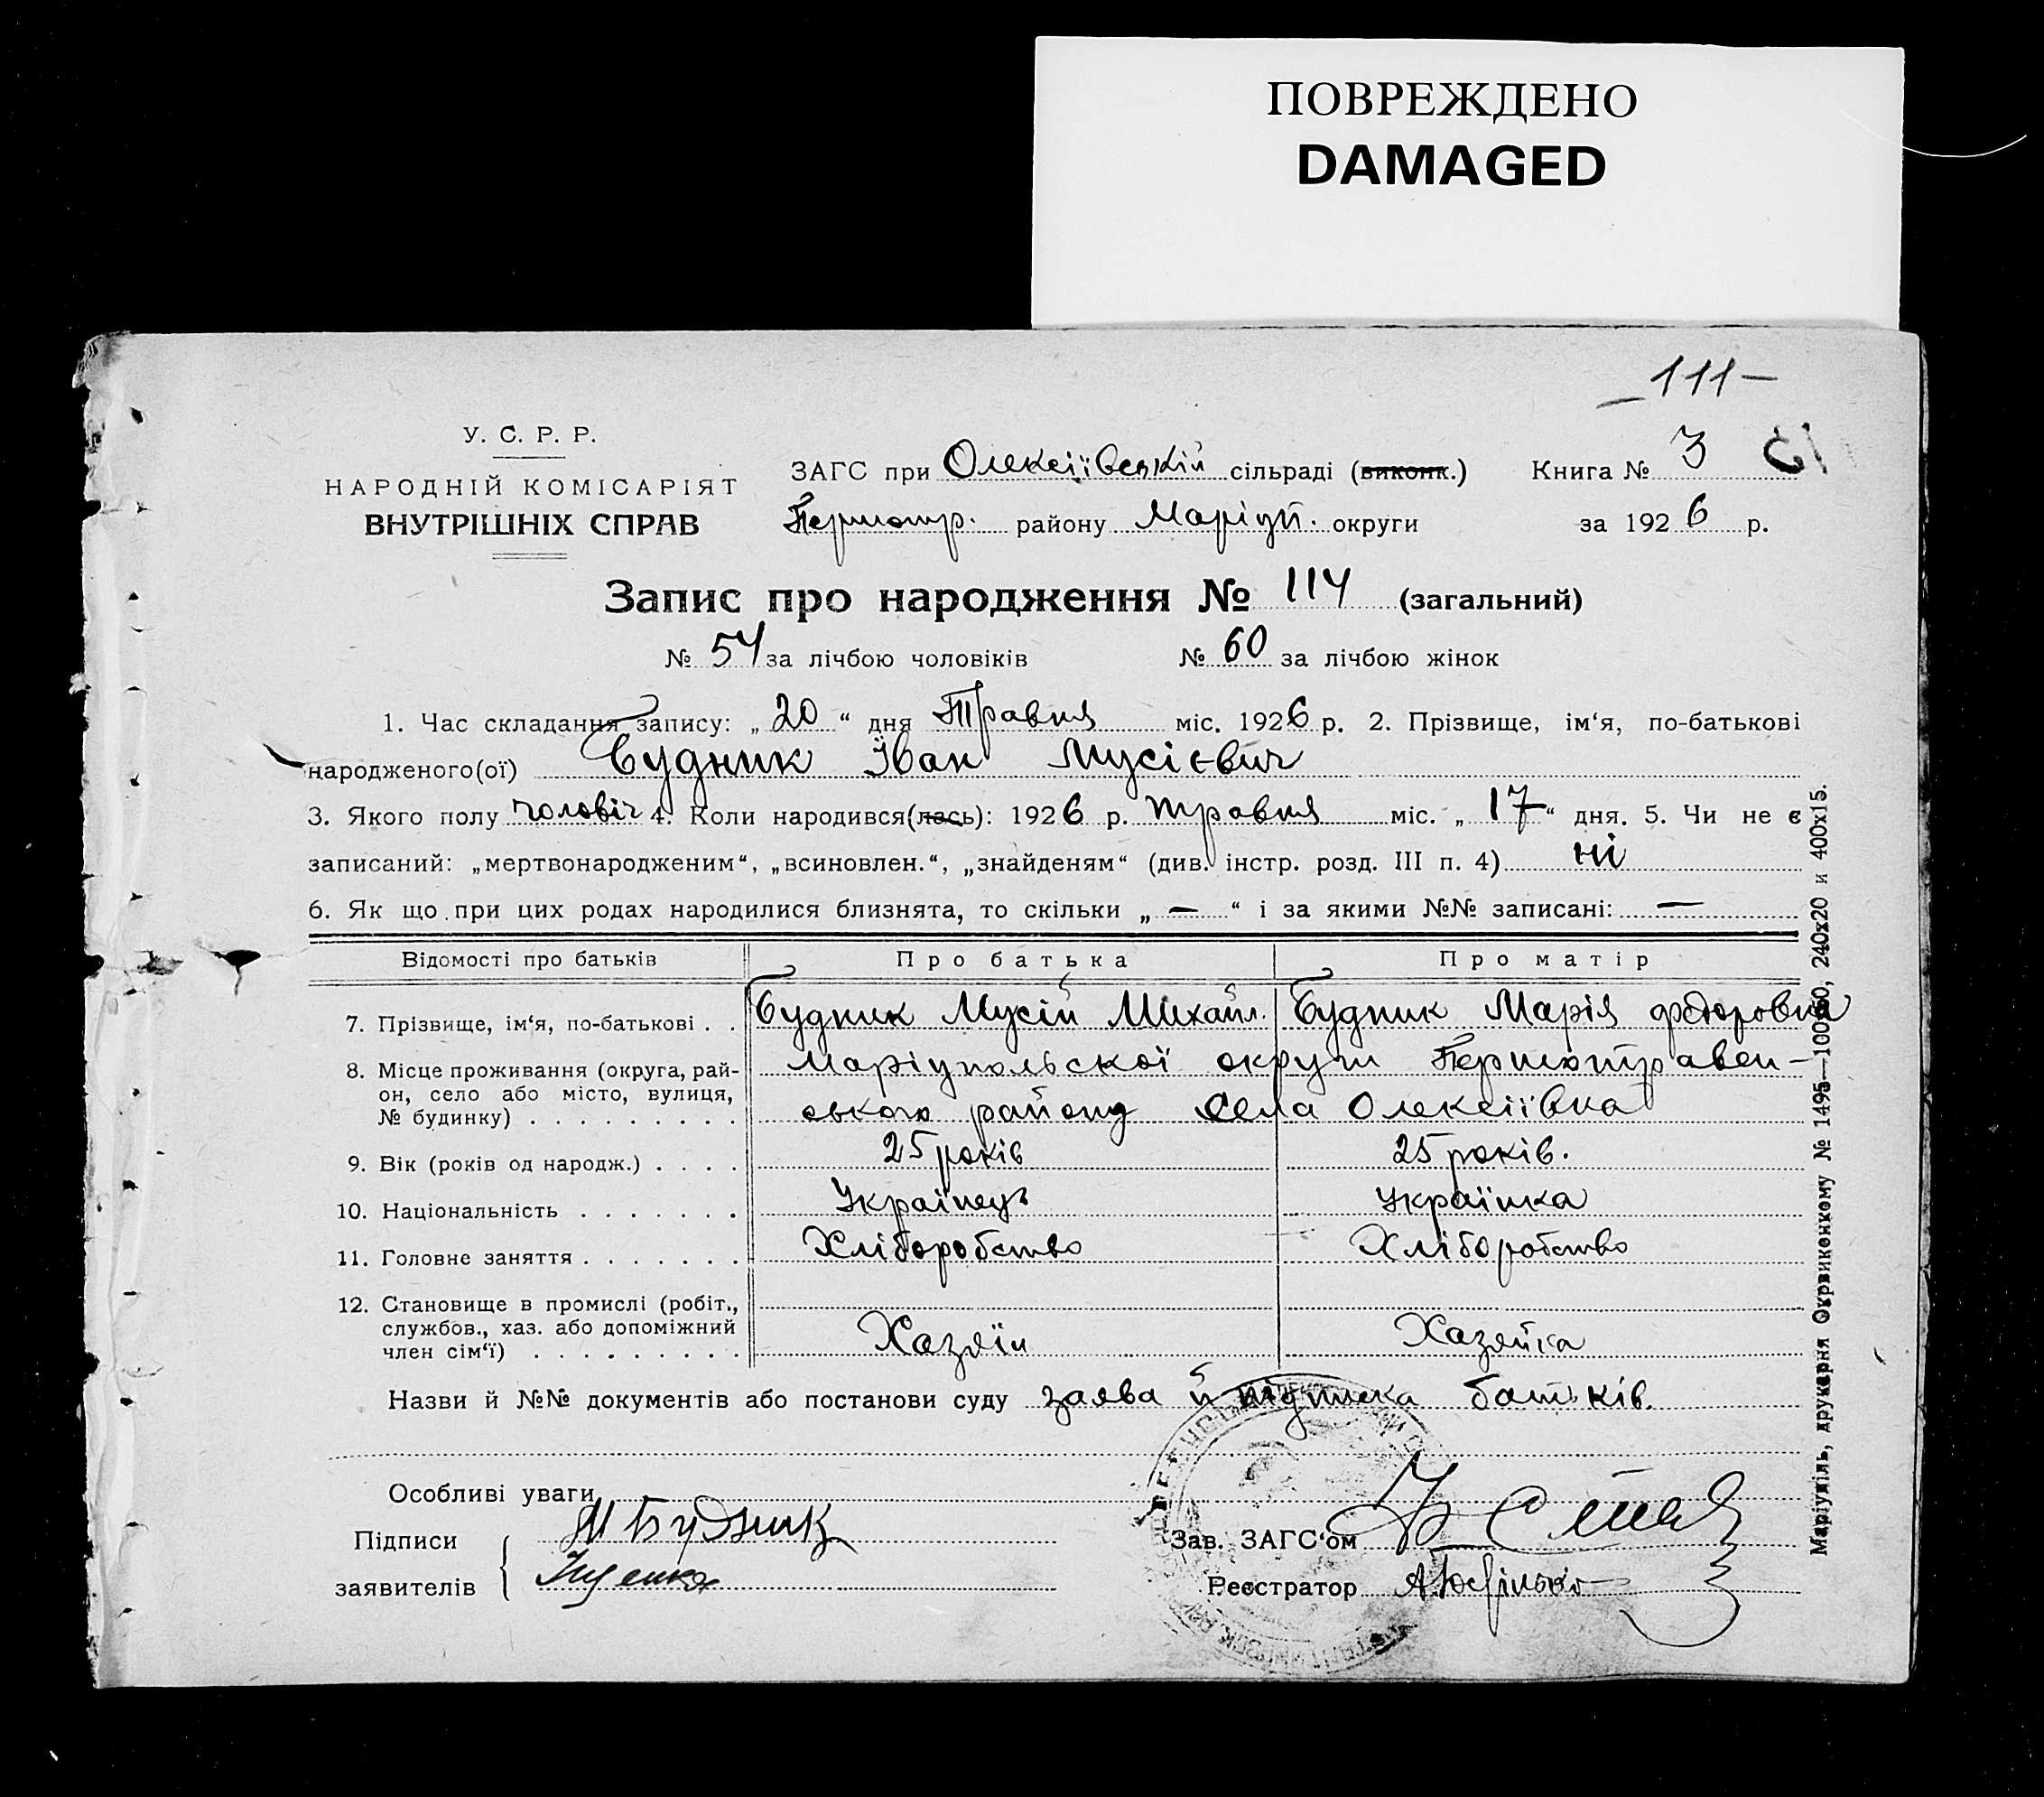 ПОВРЕЖДЕНО
DAMAGED
111-
У. С. Р. Р.
НАРОДНІЙ КОМІСАРІЯТ
ВНУТРІШНІХ СПРАВ
ЗАГС при Олексіївській сільраді (виконк.) Книга № 3
Першотр. району Маріуп. округи за 1926 р.
Запис про народження № 114 (загальний)
№ 54 за лічбою чоловіків № 60 за лічбою жінок
1. Час складання запису: „20“ дня Травня міс. 1926 р. 2. Прізвище, ім‘я, по-батькові
народженого(ої) Будник Іван Мусієвич
3. Якого полу чоловіч 4. Коли народився(лась): 1926 р. травня міс. „17“ дня. 5. Чи не є
записаний: „мертвонародженим“, „всиновлен.“, „знайденям“ (див. інстр. розд. III п. 4) ні
6. Як що при цих родах народилися близнята, то скільки „—“ і за якими №№ записані: —
Відомості про батьків Про батька Про матір
7. Прізвище, ім‘я, по-батькові . . Будник Мусій Михайл. Будник Марія Федоровна
8. Місце проживання (округа, рай- Маріупольскої округи Першотравен-
он, село або місто, вулиця,
№ будинку) . . . . . . . . . ського району села Олексіївка
9. Вік (років од народж.) . . . . 25 років 25 років.
10. Національність . . . . . . . Українець Українка
11. Головне заняття . . . . . . . Хліборобство Хліборобство
12. Становище в промислі (робіт.,
службов., хаз. або допоміжний
член сім‘ї) . . . . . . . . . Хазяїн Хазяйка
Назви й №№ документів або постанови суду заява й підписка батьків.
Особливі уваги
Підписи М Будник Зав. ЗАГС‘ом
заявителів Реєстратор
Маріупіль, друкарня Окрвиконкому № 1495—100х50, 240х20 и 400х15.